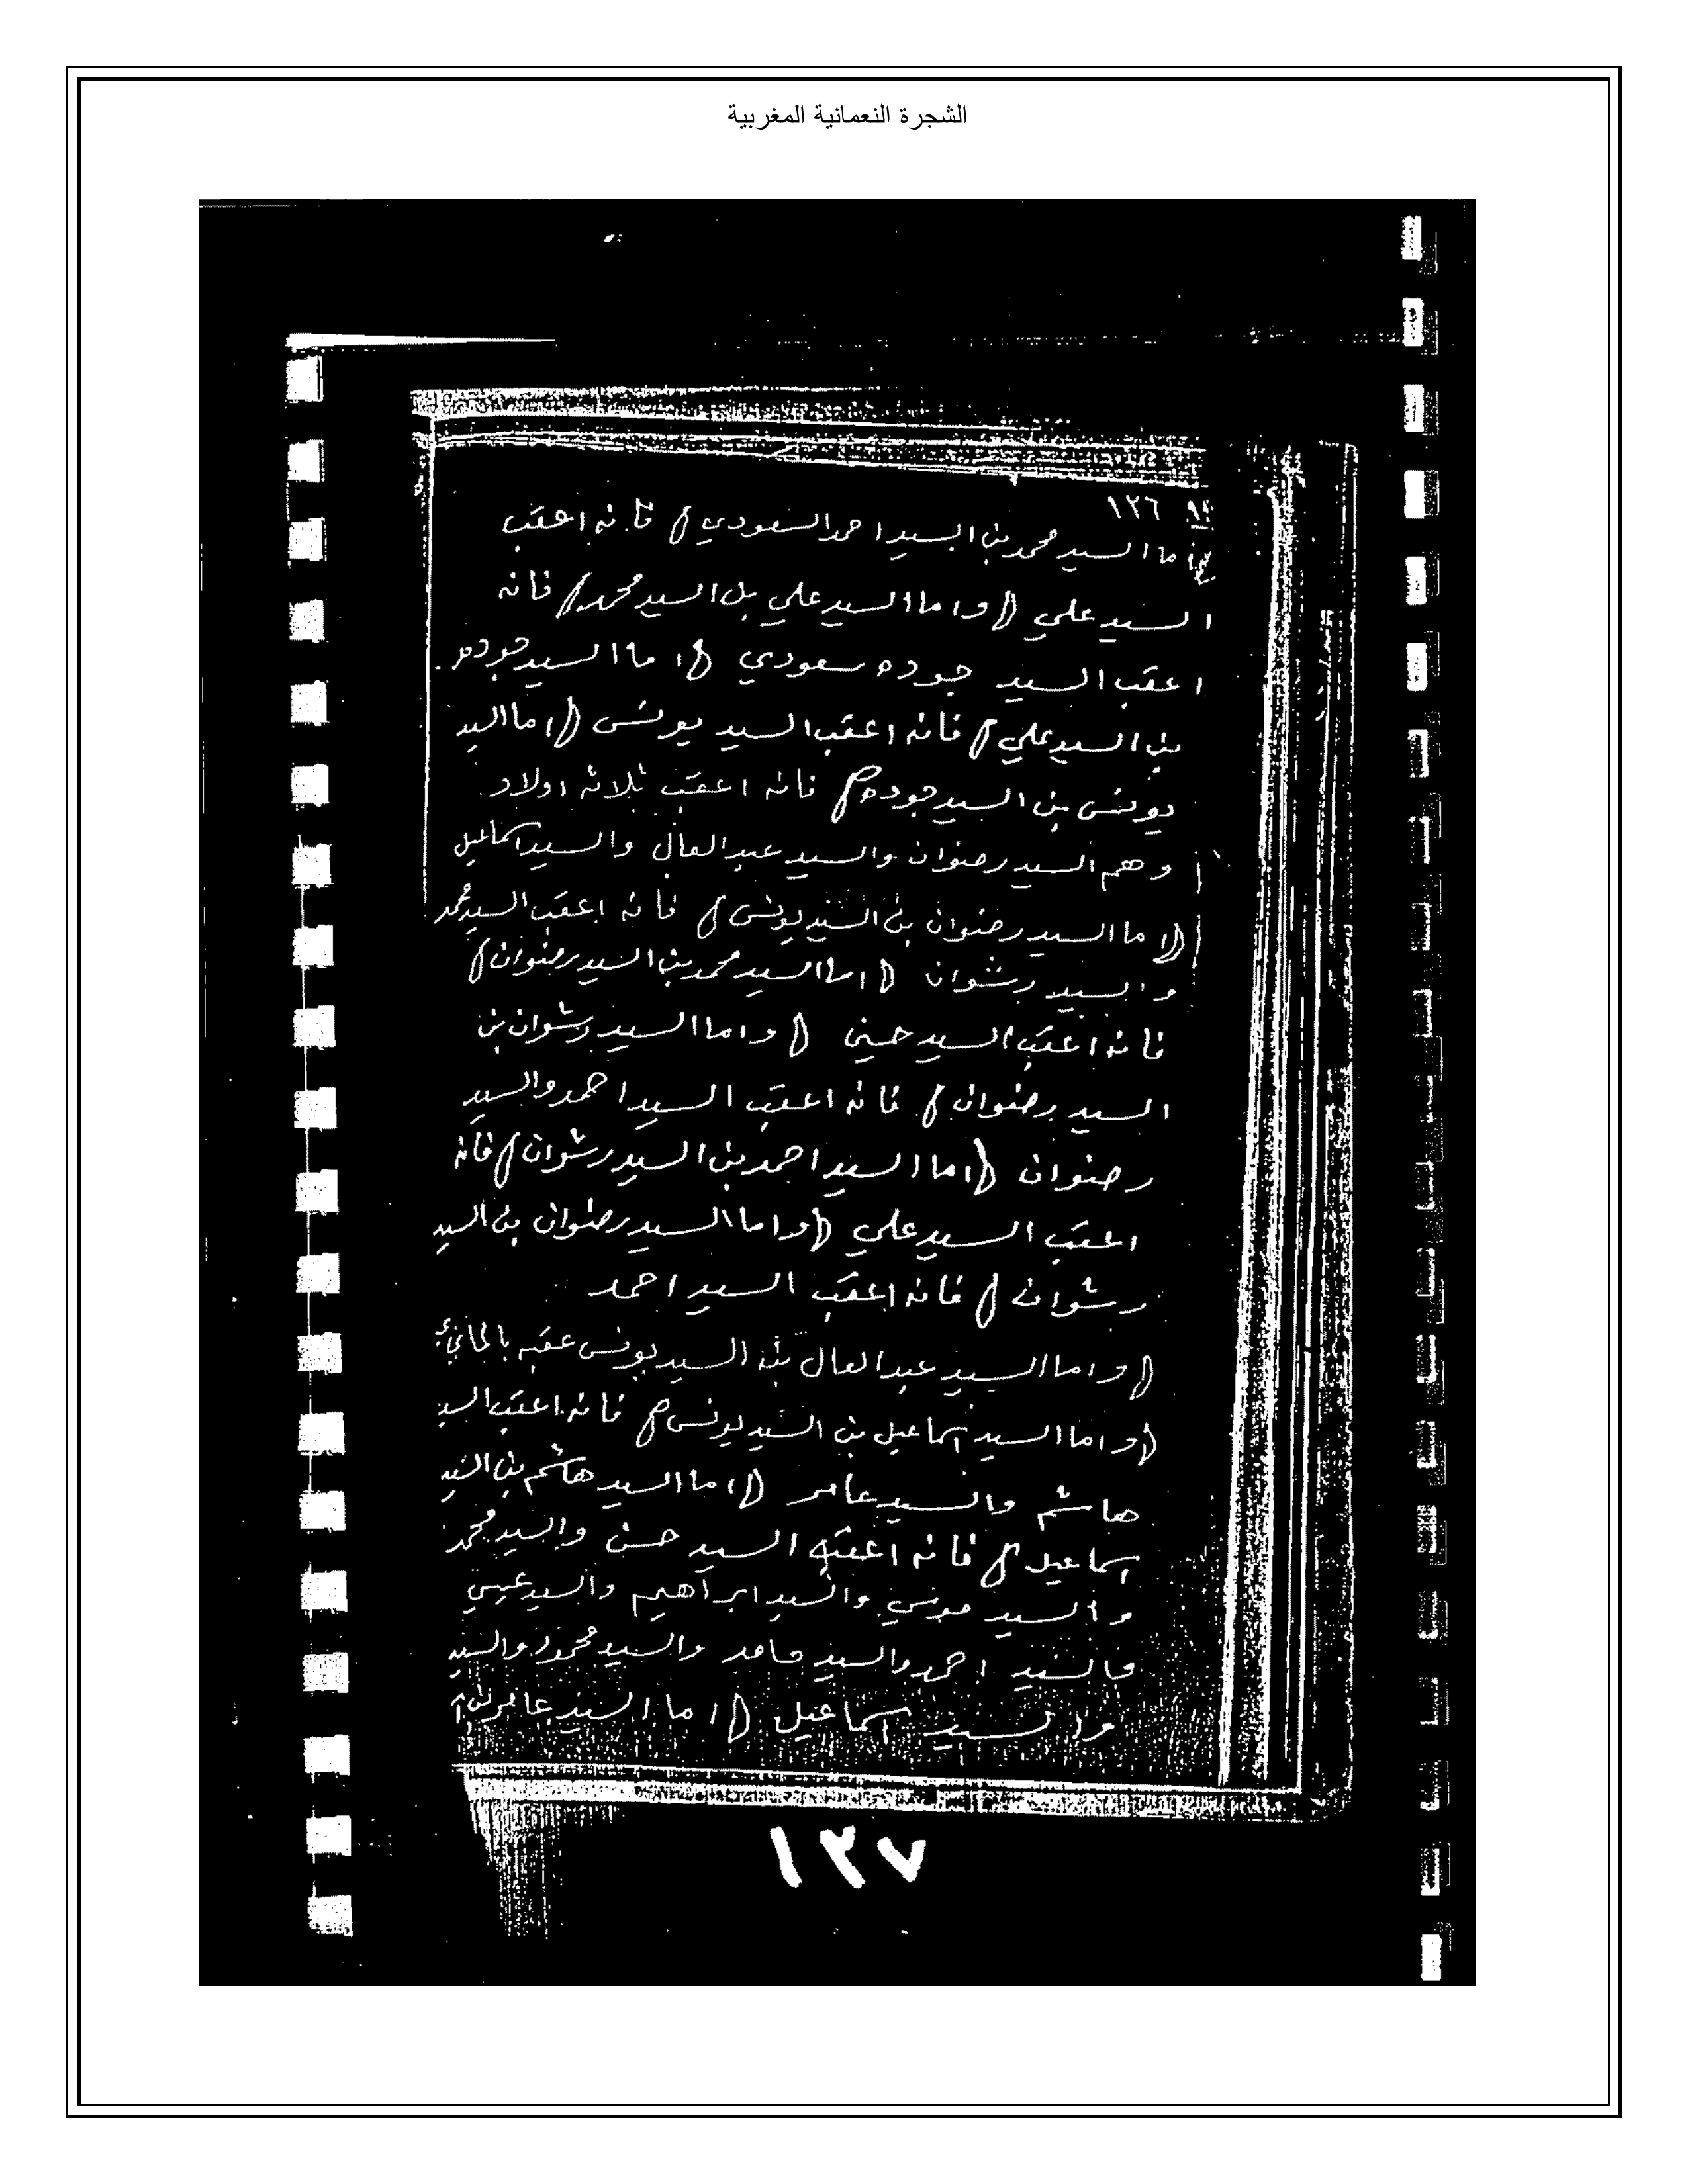 الشجرة النعمانية المغربية
١٢٦
اما السيد محمد بن السيد احمد السعودي) فانه اعقب
السيد علي (واما السيد علي بن السيد محمد) فانه
اعقب السيد جوده سعودي (اما السيد جوده
بن السيد علي) فانه اعقب السيد يونس (اما السيد
يونس بن السيد جوده) فانه اعقب ثلاثه اولاد
وهم السيد رضوان والسيد عبد العال والسيد اسماعيل
(اما السيد رضوان بن السيد يونس) فانه اعقب السيد محمد
والسيد رشوان (اما السيد محمد بن السيد رضوان)
فانه اعقب السيد حسين (واما السيد رشوان بن
السيد رضوان) فانه اعقب السيد احمد والسيد
رضوان (اما السيد احمد بن السيد رشوان) فانه
اعقب السيد علي (واما السيد رضوان بن السيد
رشوان) فانه اعقب السيد احمد
(واما السيد عبد العال بن السيد يونس عقبه
(واما السيد اسماعيل بن السيد يونس) فانه اعقب السيد
هاشم والسيد عامر (اما السيد هاشم بن السيد
اسماعيل) فانه اعقب السيد حسن والسيد محمد
والسيد موسي والسيد ابراهيم والسيد عيسي
والسيد احمد والسيد حامد والسيد محمود والسيد
والسيد اسماعيل (اما السيد عامر بن
١٢٧